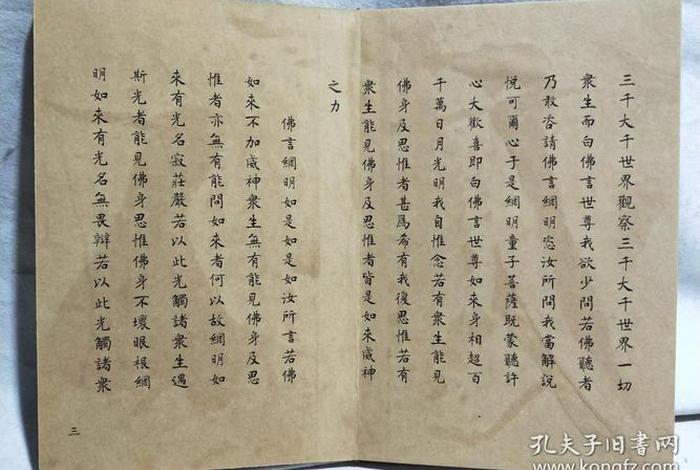 三千大千世界觀察三千大千世界一切
衆生而白佛言世尊我欲少問若佛聽者
乃敢咨請佛言網明恣汝所問我當解說
悅可爾心于是網明童子菩薩既蒙聽許
心大歡喜即白佛言世尊如來身相超百
千萬日月光明我自惟念若有衆生能見
佛身及思惟者甚爲希有我復思惟若有
衆生能見佛身及思惟者皆是如來威神
之力
佛言網明如是如是如汝所言若佛
如來不加威神衆生無有能見佛身及思
惟者亦無有能問如來者何以故網明如
來有光名寂莊嚴若以此光觸諸衆生遇
斯光者能見佛身思惟佛身不壞眼根網
明如來有光名無畏辯若以此光觸諸衆
三
孔夫子旧书网
www.kongfz.com